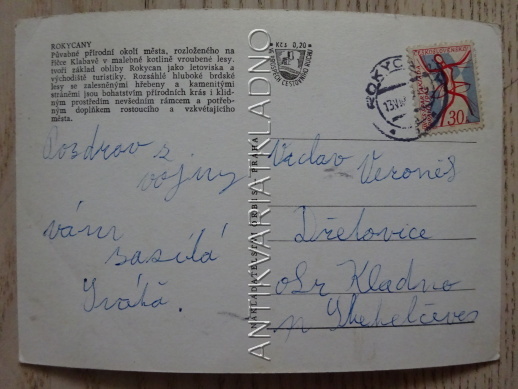 ROKYCANY
Půvabné přírodní okolí města, rozloženého na
říčce Klabavě v malebné kotlině vroubené lesy,
tvoří základ obliby Rokycan jako letoviska a
východiště turistiky. Rozsáhlé hluboké brdské
lesy se zalesněnými hřebeny a kamenitými
stráněmi jsou bohatstvím přírodních krás i klid-
ným prostředím nevšedním rámcem a potřeb-
ným doplňkem rostoucího a vzkvétajícího
města.
Kčs 0,20
ROKYCAN
ČESKOSLOVENSKO
30
Pozdrav z
vojny
vám
zasílá
Vráťa.
NAKLADATELSTVÍ ORBIS PRAHA
ANTIKVARIAT KLADNO
Václav Veroněs
Dřetovice
okr Kladno
p Stehelčeves